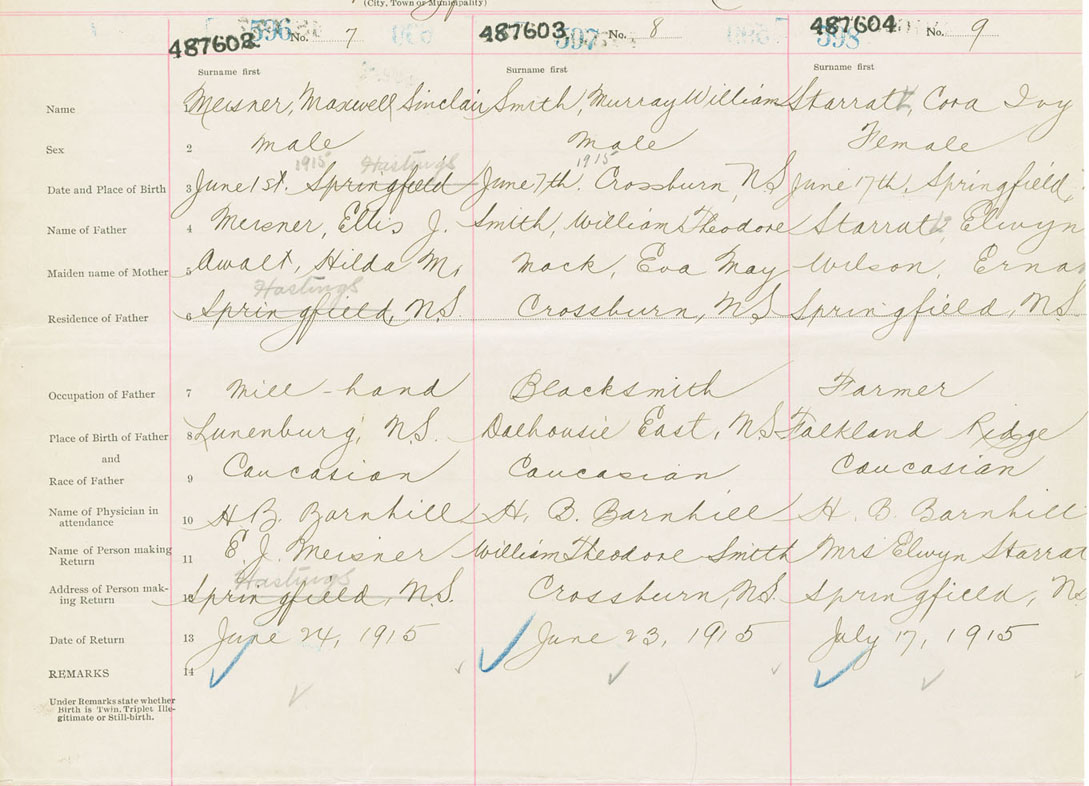 (City, Town or Municipality)
487602 596 No. 7 487603 597 No. 8 487604 598 No. 9
Surname first Surname first Surname first
Name 1 Meisner, Maxwell Sinclair Smith, Murray William Starratt, Cora Ivy
Sex 2 Male Male Female
1915 Hastings 1915
Date and Place of Birth 3 June 1st. Springfield June 7th. Crossburn, NS June 17th, Springfield,
Name of Father 4 Meisner, Ellis J. Smith, William Theodore Starratt, Elwyn
Maiden name of Mother 5 Awalt, Hilda M. Mack, Eva May Wilson, Erna
Hastings
Residence of Father 6 Springfield, N.S. Crossburn, NS Springfield, NS.
Occupation of Father 7 Mill-hand Blacksmith Farmer
Place of Birth of Father 8 Lunenburg, N.S. Dalhousie East, NS Falkland Ridge
and
Race of Father 9 Caucasian Caucasian Caucasian
Name of Physician in
attendance 10 H. B. Barnhill H. B. Barnhill H. B. Barnhill
Name of Person making
Return 11 E. J. Meisner William Theodore Smith Mrs Elwyn Starrat
Hastings
Address of Person mak-
ing Return 12 Springfield, N.S. Crossburn, NS. Springfield, N
Date of Return 13 June 24, 1915 June 23, 1915 July 17, 1915
REMARKS 14
Under Remarks state whether
Birth is Twin, Triplet Ille-
gitimate or Still-birth.